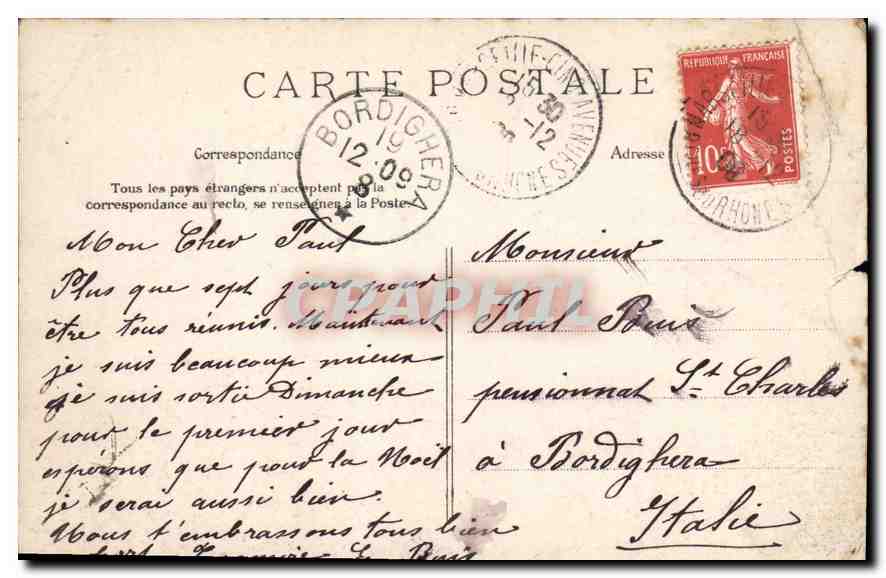 CARTE POSTALE
Correspondance
Adresse
Tous les pays étrangers n'acceptent pas la
correspondance au recto, se renseigner à la Poste.
BORDIGHERA
19
12 09
8
30
12
RÉPUBLIQUE FRANÇAISE
10
POSTES
Mon Cher Paul
Plus que sept jours pour
être tous réunis. Maintenant
je suis beaucoup mieux
je suis sortie Dimanche
pour le premier jour
espérons que pour la Noël
je serai aussi bien.
Nous t'embrassons tous bien
Monsieur
Paul Buis
pensionnat St Charles
à Bordighera
Italie
CPAPHIL